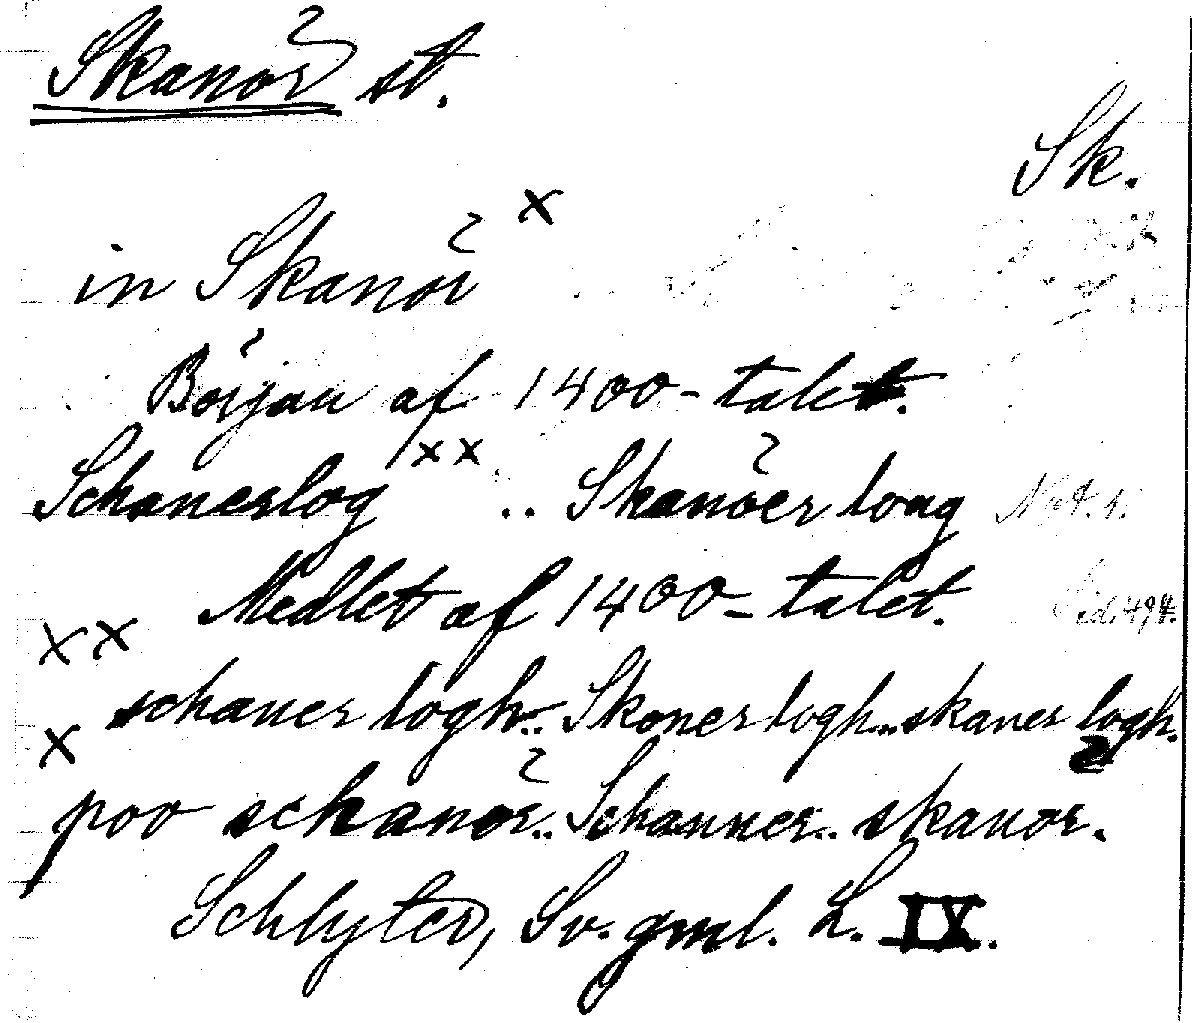 Skanör st.
Sk.
in Skanör x
Början af 1400-talet.
Schanerlog xx .. Skanöer loag Not. 1.
Medlet af 1400-talet. Sid. 494.
xx schaner logh.. Skoner logh... skaner logh.
x poo schanör.. Schanner.. skanör.
Schlyter, Sv. gml. L. IX.